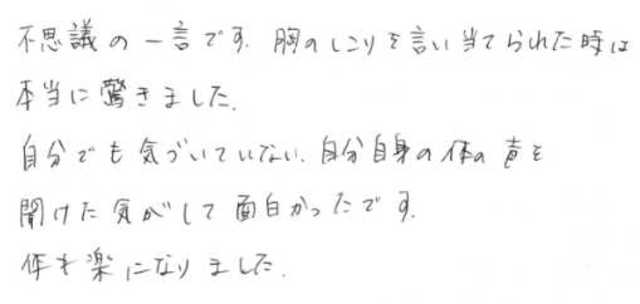 不思議の一言です。胸のしこりを言い当てられた時は
本当に驚きました。
自分でも気づいていない、自分自身の体の声を
聞けた気がして面白かったです。
体も楽になりました。